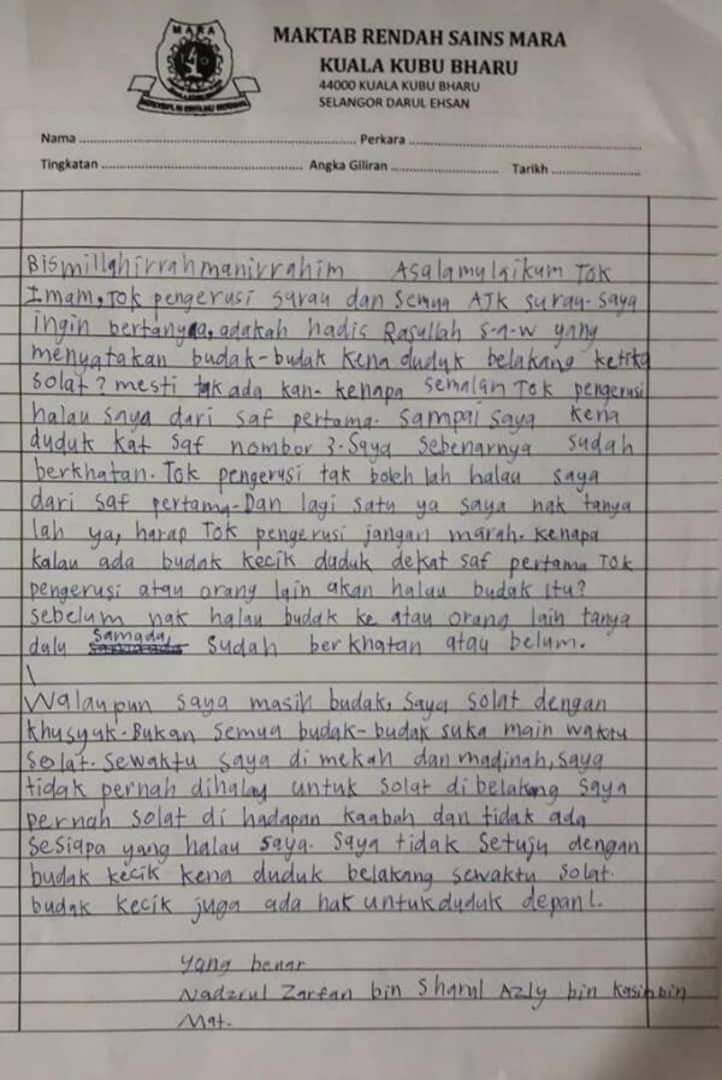 MARA
MAKTAB RENDAH SAINS MARA
KUALA KUBU BHARU
44000 KUALA KUBU BHARU
SELANGOR DARUL EHSAN
Nama ........ Perkara ........
Tingkatan ........ Angka Giliran ........ Tarikh ........
Bismillahirrahmanirrahim Asalamulaikum Tok
Imam, Tok pengerusi surau dan semua AJK surau. Saya
ingin bertanya, adakah hadis Rasullah s.a.w yang
menyatakan budak-budak kena duduk belakang ketika
solat? mesti tak ada kan. kenapa semalam Tok pengerusi
halau saya dari saf pertama. Sampai saya kena
duduk kat saf nombor 3. Saya sebenarnya sudah
berkhatan. Tok pengerusi tak boleh lah halau saya
dari saf pertama. Dan lagi satu ya saya nak tanya
lah ya, harap Tok pengerusi jangan marah. kenapa
kalau ada budak kecik duduk dekat saf pertama Tok
pengerusi atau orang lain akan halau budak itu?
sebelum nak halau budak ke atau orang lain tanya
dulu samada, sudah berkhatan atau belum.
Walaupun saya masih budak, saya solat dengan
khusyuk. Bukan semua budak-budak suka main waktu
solat. Sewaktu saya di mekah dan madinah, saya
tidak pernah dihalau untuk solat di belakang saya
pernah solat di hadapan kaabah dan tidak ada
sesiapa yang halau saya. Saya tidak setuju dengan
budak kecik kena duduk belakang sewaktu solat.
budak kecik juga ada hak untuk duduk depan!.
Yang benar
Nadzrul Zarfan bin Sharul Azly bin Kasin bin
Mat.